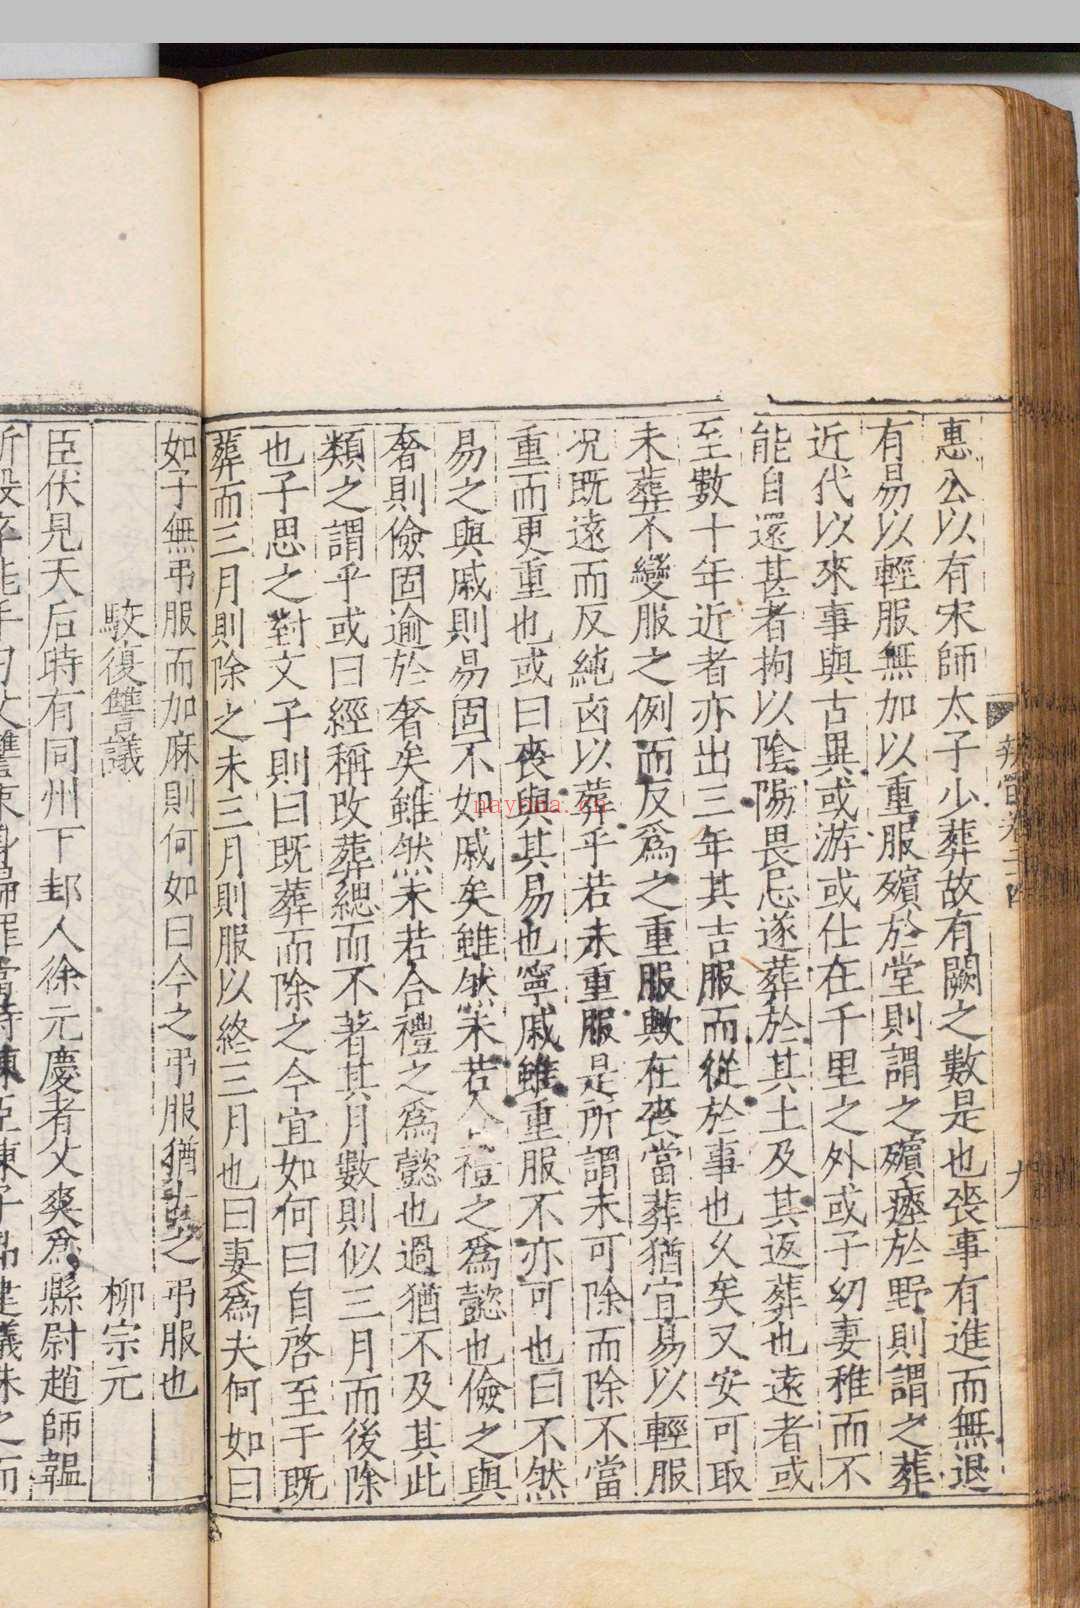 惠公以有宋師太子少葬故有闕之數是也喪事有進而無退
有易以輕服無加以重服殯於堂則謂之殯瘞於野則謂之葬
近代以來事與古異或游或仕在千里之外或子幼妻稚而不
能自還甚者拘以陰陽畏忌遂葬於其土及其返葬也遠者或
至數十年近者亦出三年其吉服而從於事也久矣又安可取
未葬不變服之例而反爲之重服歟在喪當葬猶宜易以輕服
况既遠而反純凶以葬乎若未重服是所謂未可除而除不當
重而更重也或曰喪與其易也寧戚雖重服不亦可也曰不然
易之與戚則易固不如戚矣雖然未若合禮之爲懿也儉之與
奢則儉固逾於奢矣雖然未若合禮之爲懿也過猶不及其此
類之謂乎或曰經稱改葬緦而不著其月數則似三月而後除
也子思之對文子則曰既葬而除之今宜如何曰自啓至于既
葬而三月則除之未三月則服以終三月也曰妻爲夫何如曰
如子無弔服而加麻則何如曰今之弔服猶古之弔服也
駁復讐議 柳宗元
臣伏見天后時有同州下邽人徐元慶者父爽爲縣尉趙師韞
nayona.cn